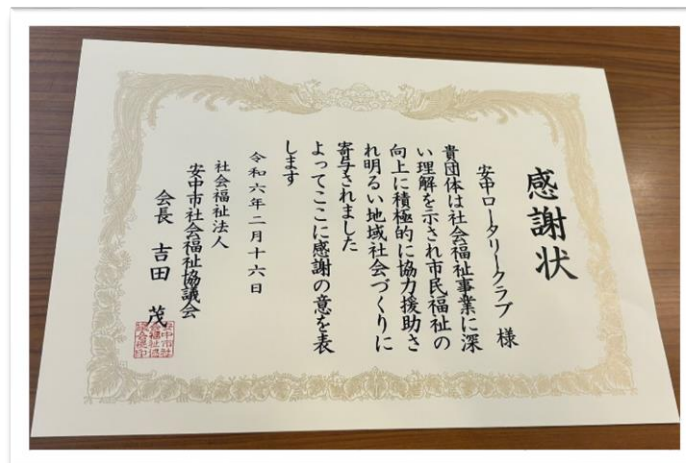 感謝状
安中ロータリークラブ 様
貴団体は社会福祉事業に深
い理解を示され市民福祉の
向上に積極的に協力援助さ
れ明るい地域社会づくりに
寄与されました
よってここに感謝の意を表
します
令和六年二月十六日
社会福祉法人
安中市社会福祉協議会
会長 吉田 茂